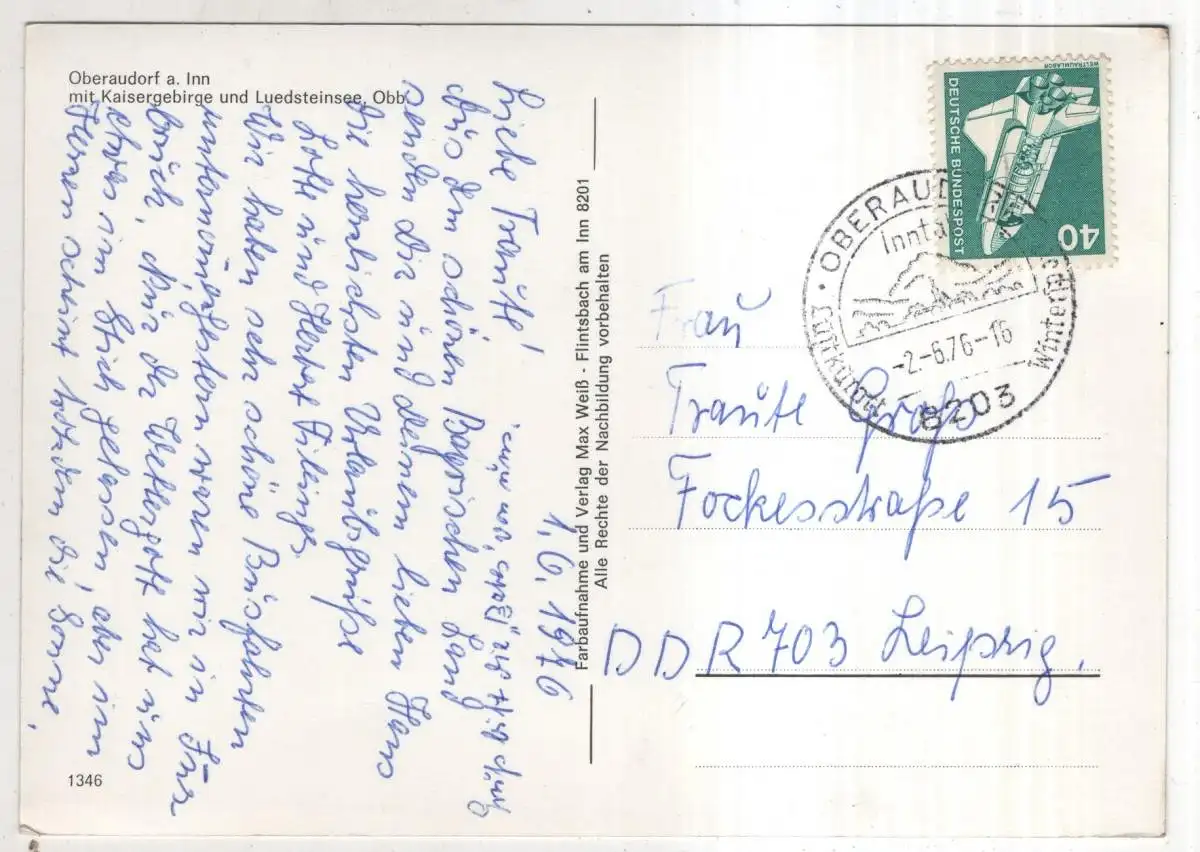 Oberaudorf a. Inn
mit Kaisergebirge und Luedsteinsee, Obb.
1. 6. 1976
Liebe Traute!
Aus dem schönen Bayrischen Land
senden Dir und deinen lieben Hans
die herzlichsten Urlaubsgrüße
Lotte und Herbert
Wir haben sehr schöne Busfahrten
unternom̄en, gestern waren wir in Inns
bruck. Nur der Wettergott hat uns
etwas im Stich gelassen, aber im
Herzen scheint trotzdem die Sonne.
1346
Farbaufnahme und Verlag Max Weiß - Flintsbach am Inn 8201
Alle Rechte der Nachbildung vorbehalten
WELTRAUMLABOR
DEUTSCHE BUNDESPOST
40
OBERAUD
Luftkurort
-2.-6.76-16
8203
Frau
Traute Grafe
Fockestraße 15
DDR 703 Leipzig.